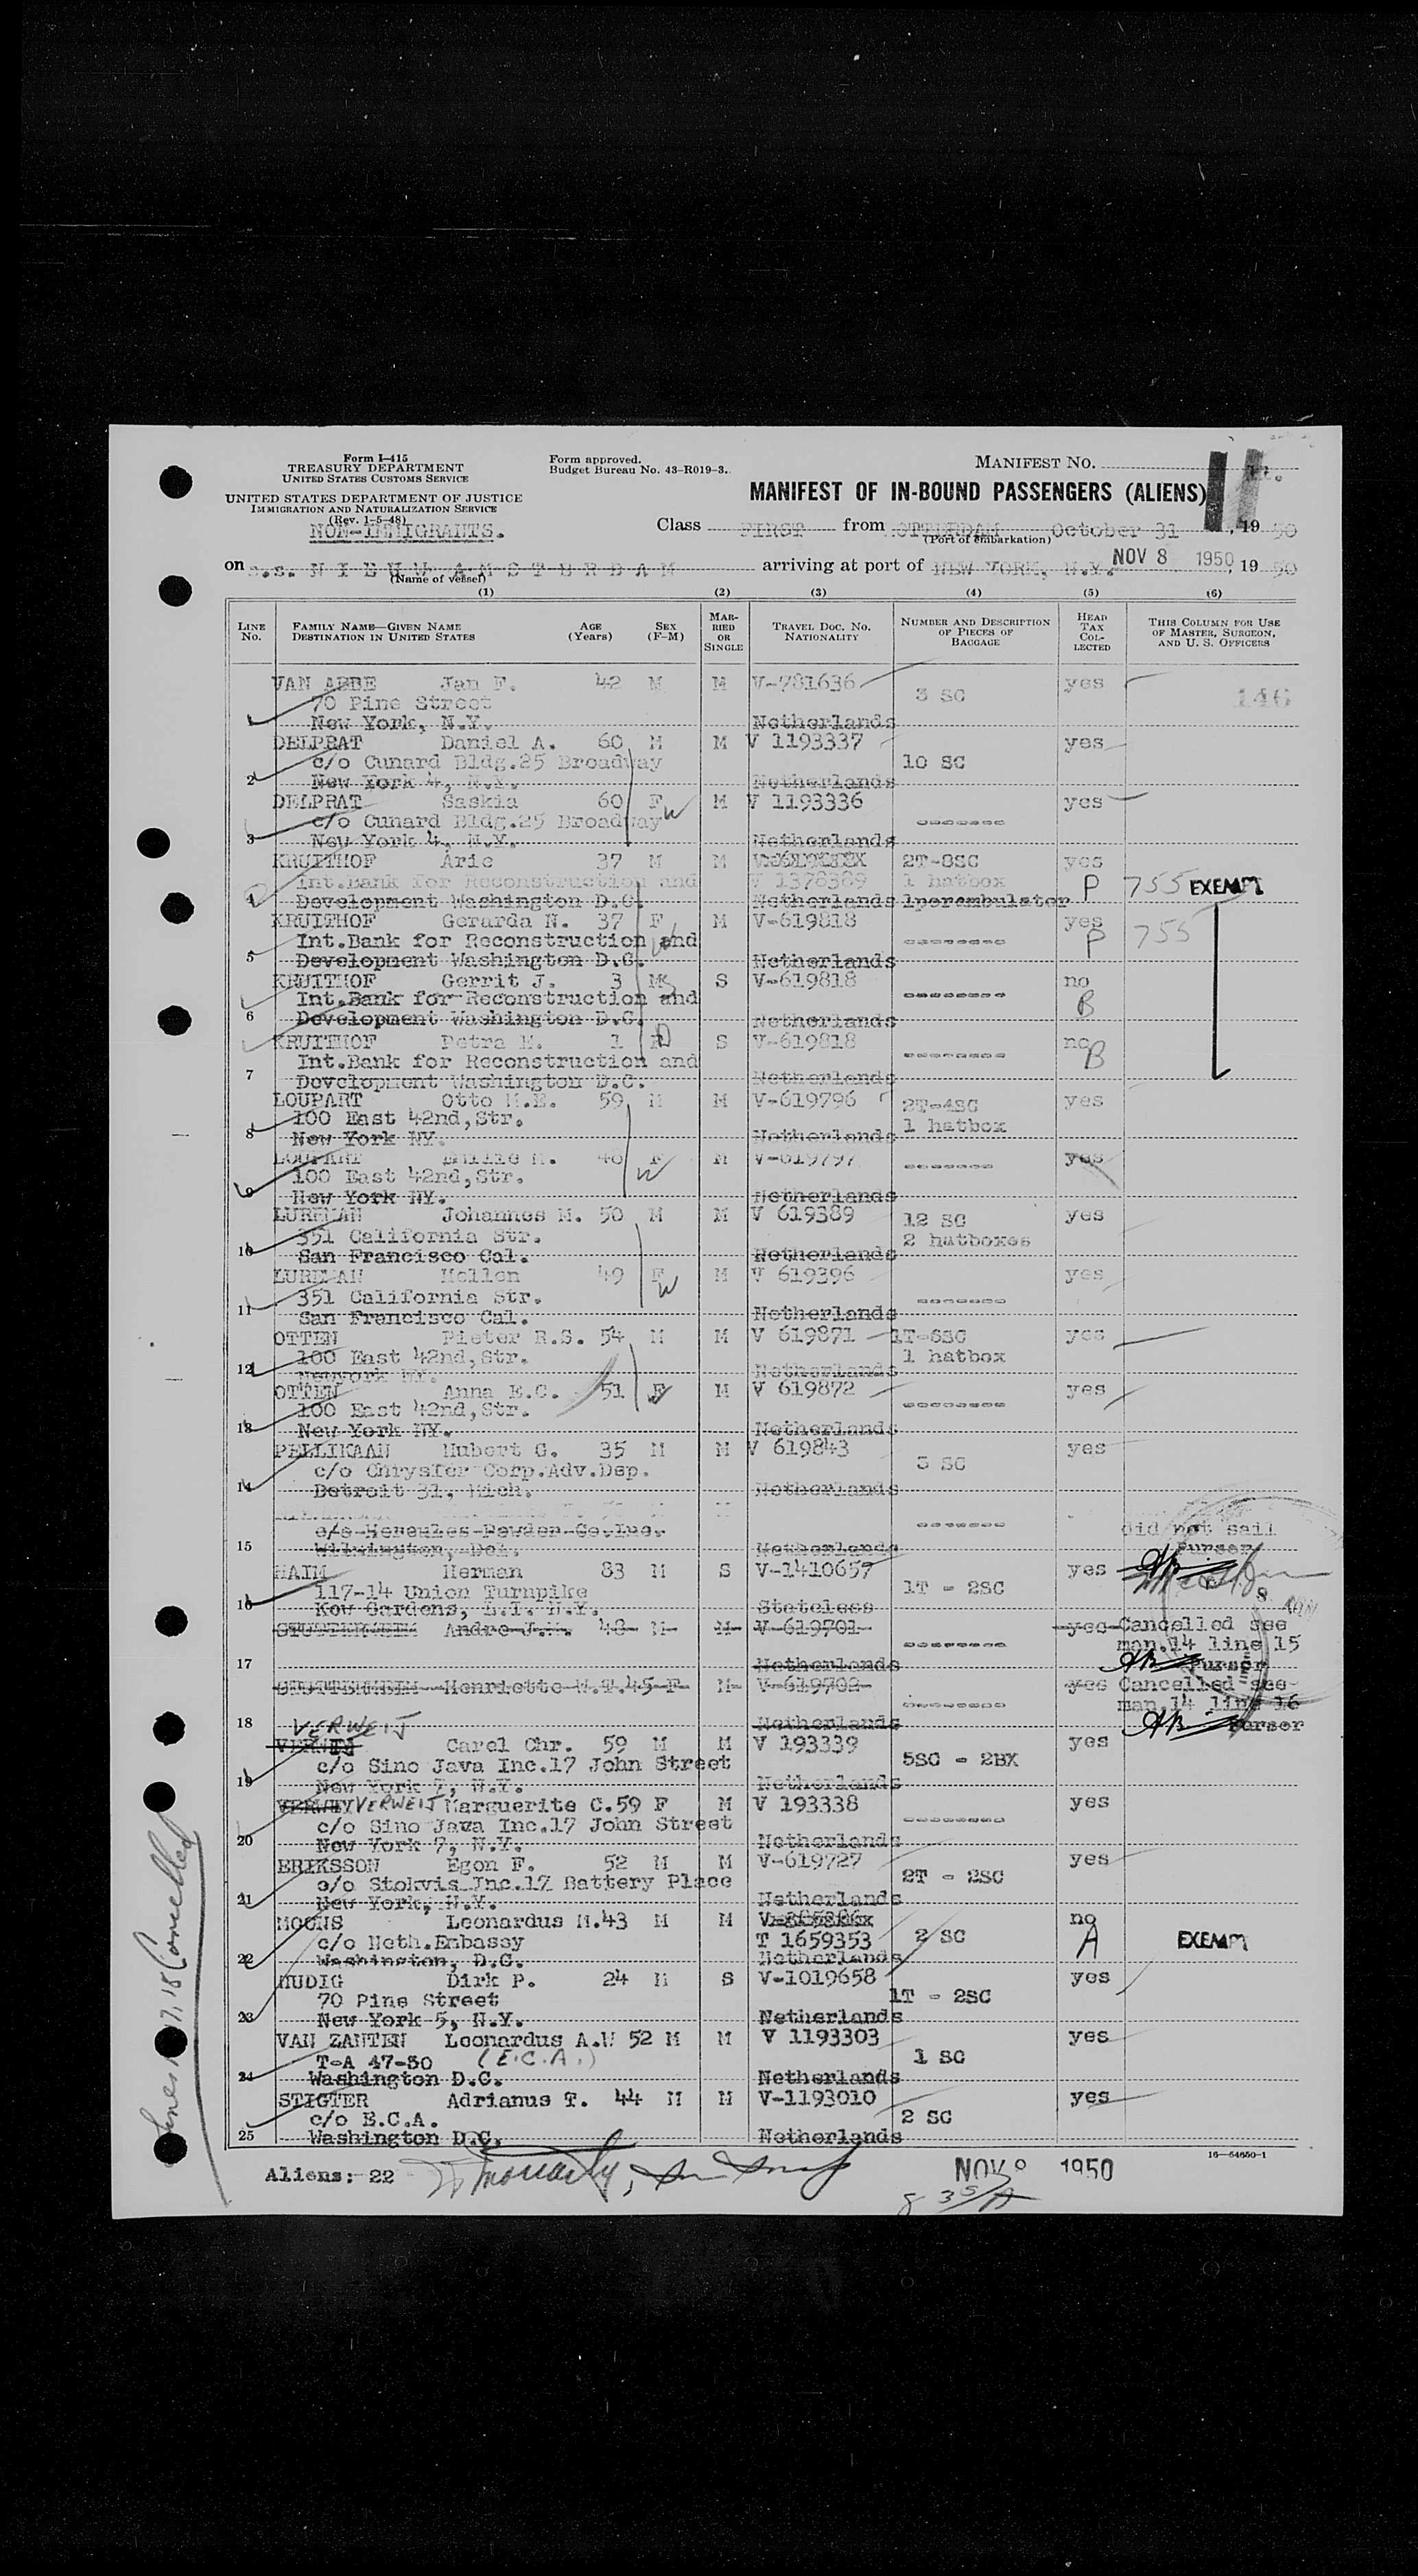 Form I-415
TREASURY DEPARTMENT
UNITED STATES CUSTOMS SERVICE
UNITED STATES DEPARTMENT OF JUSTICE
IMMIGRATION AND NATURALIZATION SERVICE
(Rev. 1-5-48)
NON-IMMIGRANTS.
Form approved.
Budget Bureau No. 43-R019-3.
MANIFEST NO.
MANIFEST OF IN-BOUND PASSENGERS (ALIENS)
Class FIRST from ROTTERDAM October 31, 19 50
(Port of embarkation)
on s.s. NIEUW AMSTERDAM arriving at port of NEW YORK, N.Y. NOV 8 1950, 19 50
(Name of vessel)
(1) (2) (3) (4) (5) (6)
LINE NO. FAMILY NAME—GIVEN NAME DESTINATION IN UNITED STATES AGE (Years) SEX (F-M) MARRIED OR SINGLE TRAVEL DOC. NO. NATIONALITY NUMBER AND DESCRIPTION OF PIECES OF BAGGAGE HEAD TAX COLLECTED THIS COLUMN FOR USE OF MASTER, SURGEON, AND U. S. OFFICERS
VAN ABBE Jan F. 42 M M V-781636 yes
70 Pine Street 3 SC 146
1 New York, N.Y. Netherlands
DELPRAT Daniel A. 60 M M V 1193337 yes
c/o Cunard Bldg.25 Broadway 10 SC
2 New York 4, N.Y. Netherlands
DELPRAT Saskia 60 F W M V 1193336 yes
c/o Cunard Bldg.25 Broadway --------
3 New York 4, N.Y. Netherlands
KRUITHOF Arie 37 M M 2T-8SC yes
Int.Bank for Reconstruction and V 1378389 1 hatbox P 755 EXEMPT
4 Development Washington D.C. Netherlands 1perembulator
KRUITHOF Gerarda N. 37 F W M V-619818 yes
Int.Bank for Reconstruction and -------- P 755
5 Development Washington D.C. Netherlands
KRUITHOF Gerrit J. 3 M S S V-619818 no
Int.Bank for Reconstruction and -------- B
6 Development Washington D.C. Netherlands
KRUITHOF Petra M. 1 F D S V-619818 no
Int.Bank for Reconstruction and -------- B
7 Development Washington D.C. Netherlands
LOUPART Otto M.E. 59 M M V-619796 2T-4SC yes
100 East 42nd,Str. 1 hatbox
8 New York NY. Netherlands
LOUPART M. F W M V-619797 -------- yes
100 East 42nd,Str.
9 New York NY. Netherlands
LUREMAN Johannes M. 50 M M V 619389 12 SC yes
351 California Str. 2 hatboxes
10 San Francisco Cal. Netherlands
LUREMAN Hellen 49 F W M V 619396 yes
351 California Str. --------
11 San Francisco Cal. Netherlands
OTTEN Pieter R.S. 54 M M V 619871 1T-6SC yes
100 East 42nd,Str. 1 hatbox
12 Newyork NY. Netherlands
OTTEN Anna E.C. 51 F W M V 619872 yes
100 East 42nd,Str. --------
13 New York NY. Netherlands
PELLIKAAN Hubert C. 35 M M V 619843 yes
c/o Chrysler Corp.Adv.Dep. 3 SC
14 Detroit 31, Mich. Netherlands
c/o Hercules Powder Co.Inc. -------- did not sail
15 Wilmington, Del. Netherlands Purser
HAIM Herman 83 M S V-1410657 yes
117-14 Union Turnpike 1T - 2SC
16 Kew Gardens, L.I. N.Y. Stateless
STUTTERHEIM Andre J.M. 48 M M V-619701 yes Cancelled see
-------- man.14 line 15
17 Netherlands Purser
STUTTERHEIM Henriette W.T. 45 F M V-619702 yes Cancelled see
-------- man.14 line 16
18 VERWEIJ Netherlands Purser
Carel Chr. 59 M M V 193339 yes
c/o Sino Java Inc.17 John Street 5SC - 2BX
19 New York 7, N.Y. Netherlands
VERWEIJ Marguerite C.59 F M V 193338 yes
c/o Sino Java Inc.17 John Street --------
20 New York 7, N.Y. Netherlands
ERIKSSON Egon F. 52 M M V-619727 yes
c/o Stokvis Inc.17 Battery Place 2T - 2SC
21 New York, N.Y. Netherlands
MOONS Leonardus M.43 M M no
c/o Neth.Embassy T 1659353 2 SC A EXEMPT
22 Washington, D.C. Netherlands
HUDIG Dirk P. 24 M S V-1019658 yes
70 Pine Street 1T - 2SC
23 New York 5, N.Y. Netherlands
VAN ZANTEN Leonardus A.W 52 M M V 1193303 yes
T-A 47-50 (E.C.A.) 1 SC
24 Washington D.C. Netherlands
STIGTER Adrianus T. 44 M M V-1193010 yes
c/o E.C.A. 2 SC
25 Washington D.C. Netherlands
16—54650-1
Aliens: 22 NOV 8 1950
Cancelled